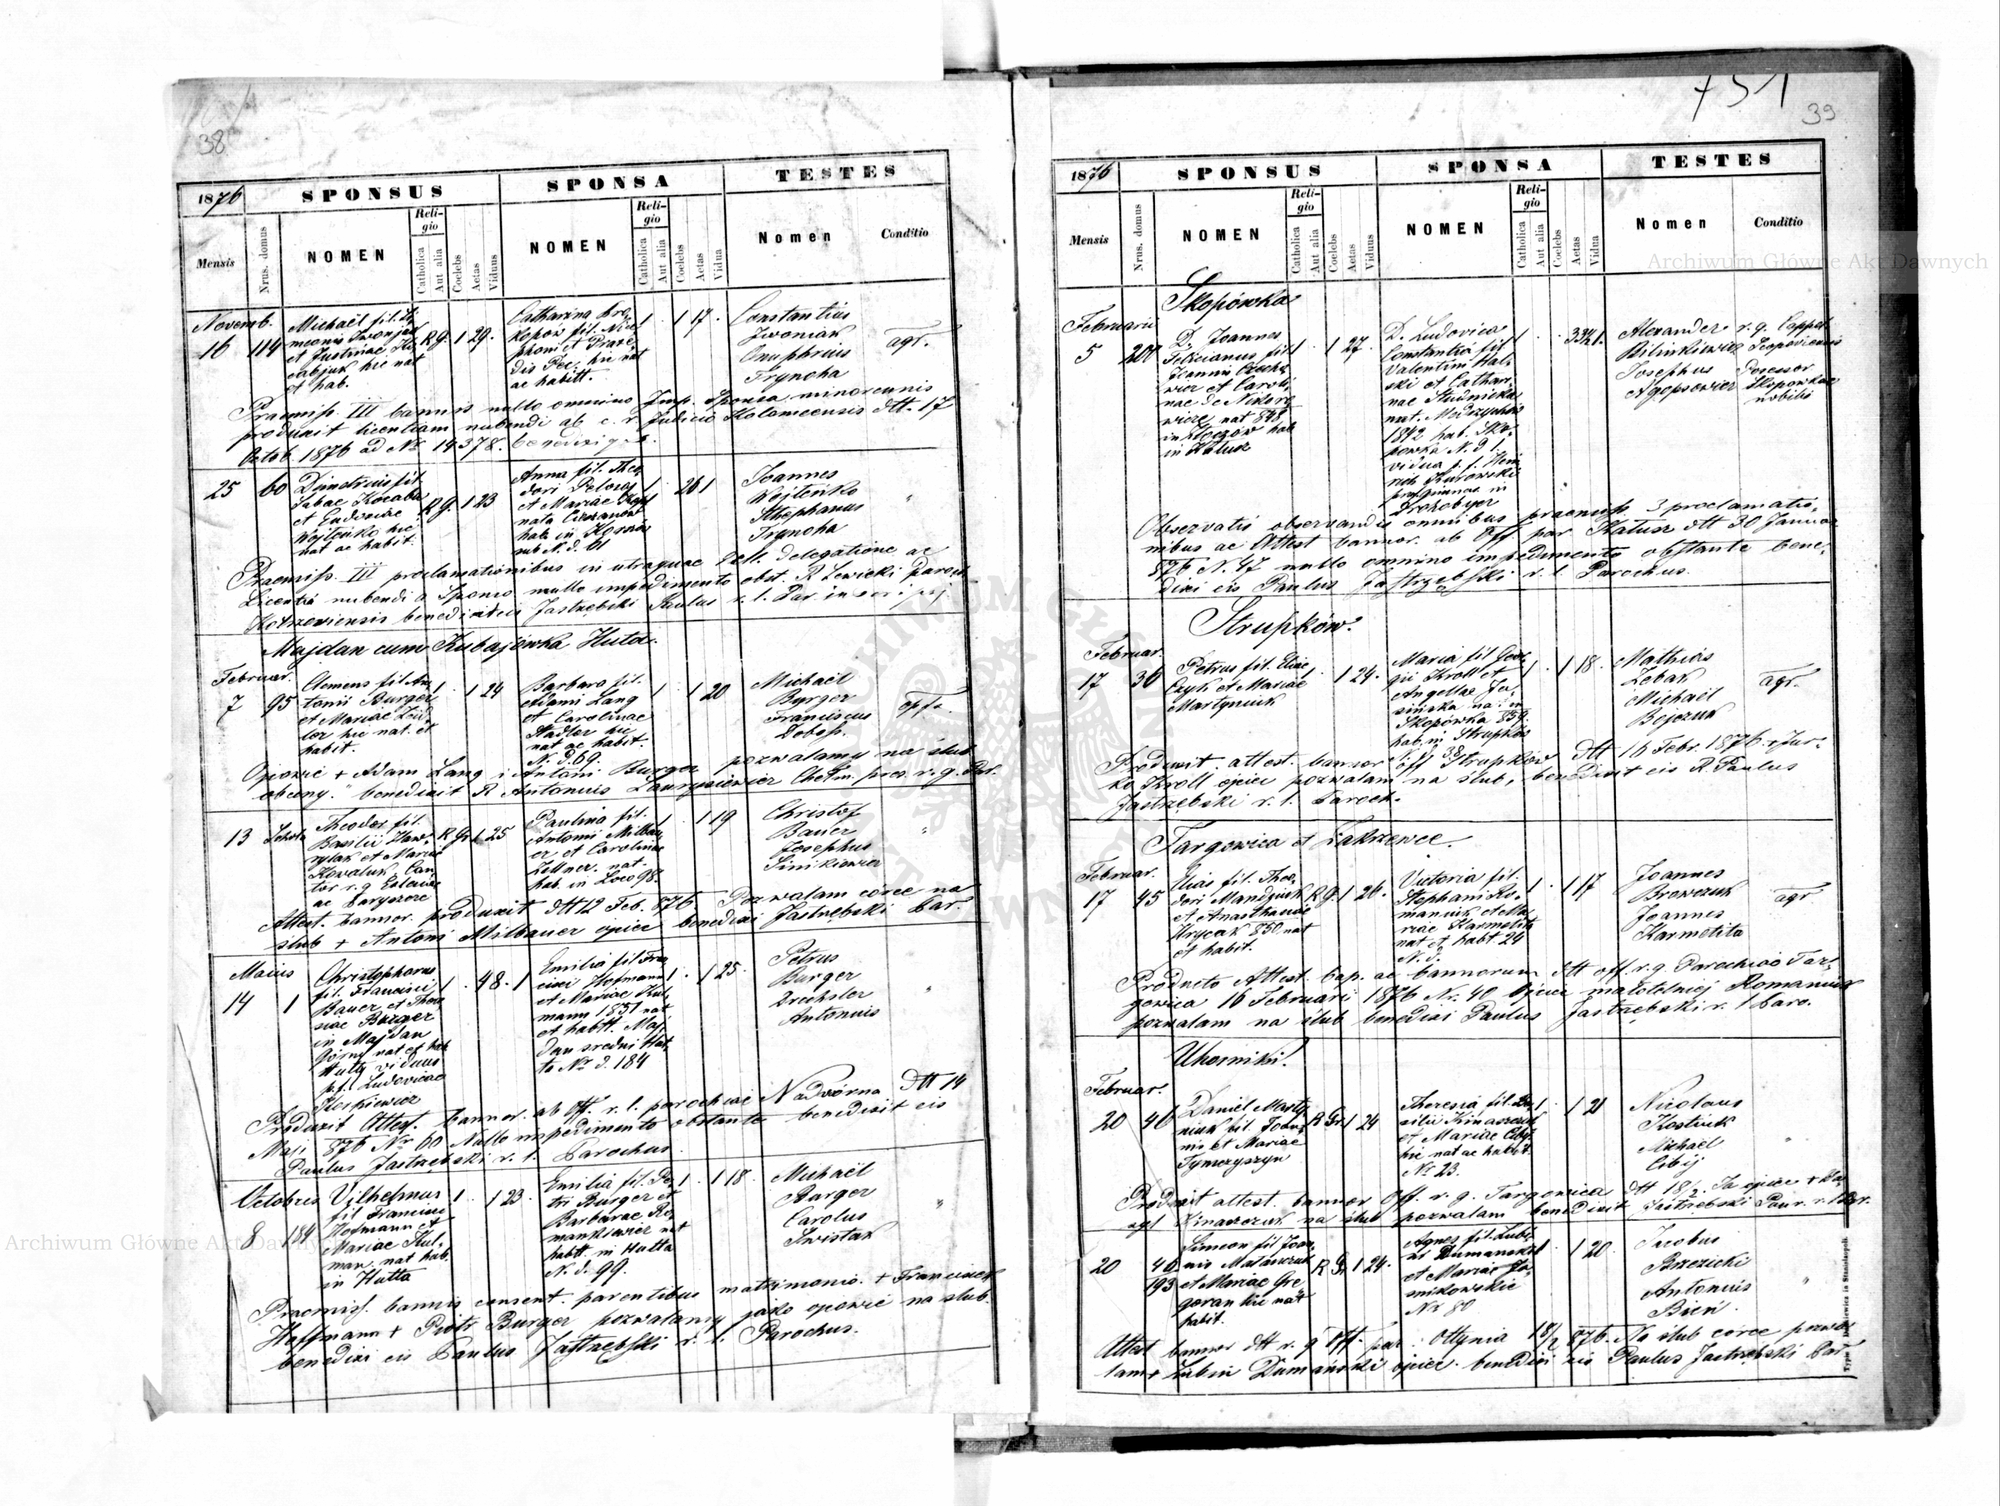 38
1876
SPONSUS
SPONSA
TESTES
Mensis
Nrus. domus
NOMEN
Religio
Catholica
Aut alia
Coelebs
Aetas
Viduus
NOMEN
Religio
Catholica
Aut alia
Coelebs
Aetas
Vidua
Nomen
Conditio
Novemb.
16 114
Michaël fil. Si
meonis
et Justinae
hic nat
et hab.
R g. 1 29.
Catharina
fil. Nice
phori et Praxe
dis hic nat
ac habitt.
1 . 1 17 .
Constantius
Iwoniak
Onuphrius
Tryncha
agr.
Praemiss. III bannis nullo omnino Imp. Sponsa minorennis
produxit licentiam nubendi ab c. r. Judicio Kolomeensis dtt. 17
Octob. 1876 ad Nr. 14378.
25 60
Dimetrius fil
Sabae
et Eudociae
Wojteńko hic
nat ac habit.
R g. 1 23
Anna fil. Theo
dori
et Mariae
nata
hab. in
sub N. d. 61
1 . 20 1
Joannes
Wojteńko
Stephanus
Tryncha
"
Praemiss. III proclamationibus in utraque delegatione ac
Licentia nubendi a Sponso nullo impedimento obst. R Lewicki Paroch
benedixit Jastrzębski Paulus r. l. Par.
Majdan cum Kubajówka Huta.
Februar.
7 95
Clemens fil. An
tonii Burger
et Mariae Zeid
ler hic nat. et
habit.
1 . 1 24
Barbara fil.
Adami Lang
et Carolinae
Stadler hic
nat ac habit.
N. d. 69.
1 . 1 20
Michaël
Burger
Franciscus
Dobosz.
opif.
Ojcowie + Adam Lang i Antoni Burger pozwalamy na ślub
obecny." benedixit R Antonius Laurysiewicz
13
Theodor fil.
Basilii Haw
rylak et Mariae
Kowaluk Can
tor r. g
ac
R Gr 1 25
Paulina fil.
Antonii Milbau
er et Carolinae
Zellner. nat.
hab. in Loco 98.
1 . 1 19
Christof
Bauer
Josephus
Sinikiewicz
"
Attest. bannor. produxit dtt 12 Feb. 876 Pozwalam córce na
ślub + Antoni Milbauer ojciec benedixi Jastrzębski Par.
Maius
14 1
Christophorus
fil. Francisci
Bauer et There
siae Burger
in Majdan
Górny nat. et hab
Hutty viduus
p. f. Ludovicae
1 . 48 . 1
Emilia fil. Fran
cisci Hofmann
et Mariae Kul
mann 1851 nat
et habitt. Maj
dan średni Hut
ta Nr d. 184
1 . 1 25 .
Petrus
Burger
Drechsler
Antonius
"
Produxit Attest. bannor. ab Off. r. l. parochiae Nadwórna dtt 14
Maji 876 Nr 60 Nullo impedimento obstante benedixit eis
Paulus Jastrzębski r. l. Parochus.
Octobris
8 184
Vilhelmus
fil Francisci
Hofmann et
Mariae Kul
man. nat hab.
in Hutta
1 . 1 23 .
Emilia fil. Pe
tri Burger et
Barbarae Ro
mankiewicz nat
habitt. in Hutta
N. d. 99.
1 . 1 18 .
Michaël
Burger
Carolus
Świstak
"
Praemiss. bannis consent. parentibus matrimonio. + Franciszek
Hoffmann + Piotr Burger pozwalamy jako ojcowie na ślub.
benedixi eis Paulus Jastrzębski r. l. Parochus.
751
39
1876
SPONSUS
SPONSA
TESTES
Mensis
Nrus. domus
NOMEN
Religio
Catholica
Aut alia
Coelebs
Aetas
Viduus
NOMEN
Religio
Catholica
Aut alia
Coelebs
Aetas
Vidua
Nomen
Conditio
Skopówka
Februarii
5
D. Joannes
Felicianus fil
Joannis
wicz et Caroli
nae de
wicze nat 848
in hab
in Kałusz
1 . 1 27 .
D. Ludovica
Constantia fil
Valentini Hal
ski et Cathari
nae Studnicka
nat.
1842 hab. Sko
powka N. d 1.
vidua p. f. Hen
rici
in
Drohobycz
Alexander r. g. Cappel
Bilinkiewicz Leopoliensis
Josephus Possessor
Agopsowicz Skopówkae
nobilis
Observatis observandis omnibus praemiss. 3 proclamatio
nibus ac Attest bannor. ab Off par Kałusz dtt 30 Janua
876 N. 47 nullo omnino impedimento obstante bene
dixi eis Paulus Jastrzębski r. l. Parochus.
Strupków.
Februar.
17 36
Petrus fil. Eliae
Czyk et Mariae
Martyniuk
1 . 1 24 .
Maria fil Geor
gii Kroll et
Angellae Ja
sińska na. in
Skopówka 859.
hab. in Strupków
38
1 . 1 18 .
Mathias
Zobak
Michaël
Bojczuk
agr.
Produxit attest. bannor Off Strupków dtt 16 Febr. 1876.
Kroll ojciec pozwalam na ślub, benedixit eis R. Paulus
Jastrzębski r. l. Paroch.
Targowica et Zakrzewce.
Februar.
17 45
Elias fil. Theo
dori Mandziuk
et Anasthasiae
Hrycak 850. nat
et habit.
R g. 1 26 .
Victoria fil.
Stephani Ro
maniuk et Ma
riae Karmelita
nat et habt. 24
N. d.
1 . 1 17
Joannes
Browczuk
Joannes
Karmelita
agr
Producto Attest. bap. ac bannorum dtt off. r. g. Parochiae Tar
gowica 16 Februarii 1876 Nr. 40 Ojciec małoletniej Romaniuk
pozwalam na ślub benedixi Paulus Jastrzębski r. l Paro.
Uhorniki.
Februar.
20 46
Daniel Marty
niuk fil. Joan
nis et Mariae
Tymczyszyn
R Gr. 1 24
Theresia fil. Ba
silii Kinaszczuk
et Mariae Cibij
hic nat ac habit.
Nr. 23.
1 . 1 21
Nicolaus
Kostiuk
Michaël
Cibij
"
Produxit attest. bannor Off. r. g. Targowica dtt 18/2. Ja ojciec + Ba
zyl Kinaszczuk na ślub pozwalam benedixit Jastrzębski Paw r. l Par.
20 40
193
Simeon fil Joan
nis
et Mariae Gre
goran hic nat
habit.
R Gr 1 24 .
Agnes fil. Lubi
ni Dumanski
et Mariae Ja
snikowskie
Nr 80
1 . 1 20 .
Jacobus
Brzezicki
Antonius
Bień
"
Attest bannor dtt r. g Off. par. Ottynia 18/2 876. Na ślub córce pozwa
lam + Lubin Dumański ojciec. benedixi eis Paulus Jastrzębski Par
Archiwum Główne Akt Dawnych
Archiwum Główne Akt Dawnych
ARCHIWUM GŁÓWNE AKT DAWNYCH